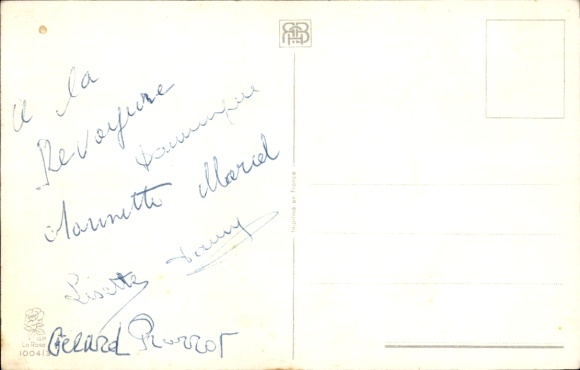 A la
Revoyure
Dominique
Nannette Marcel
Lisette Dany
Gérard Pierrot
Imprimé en France
La Rose
10041